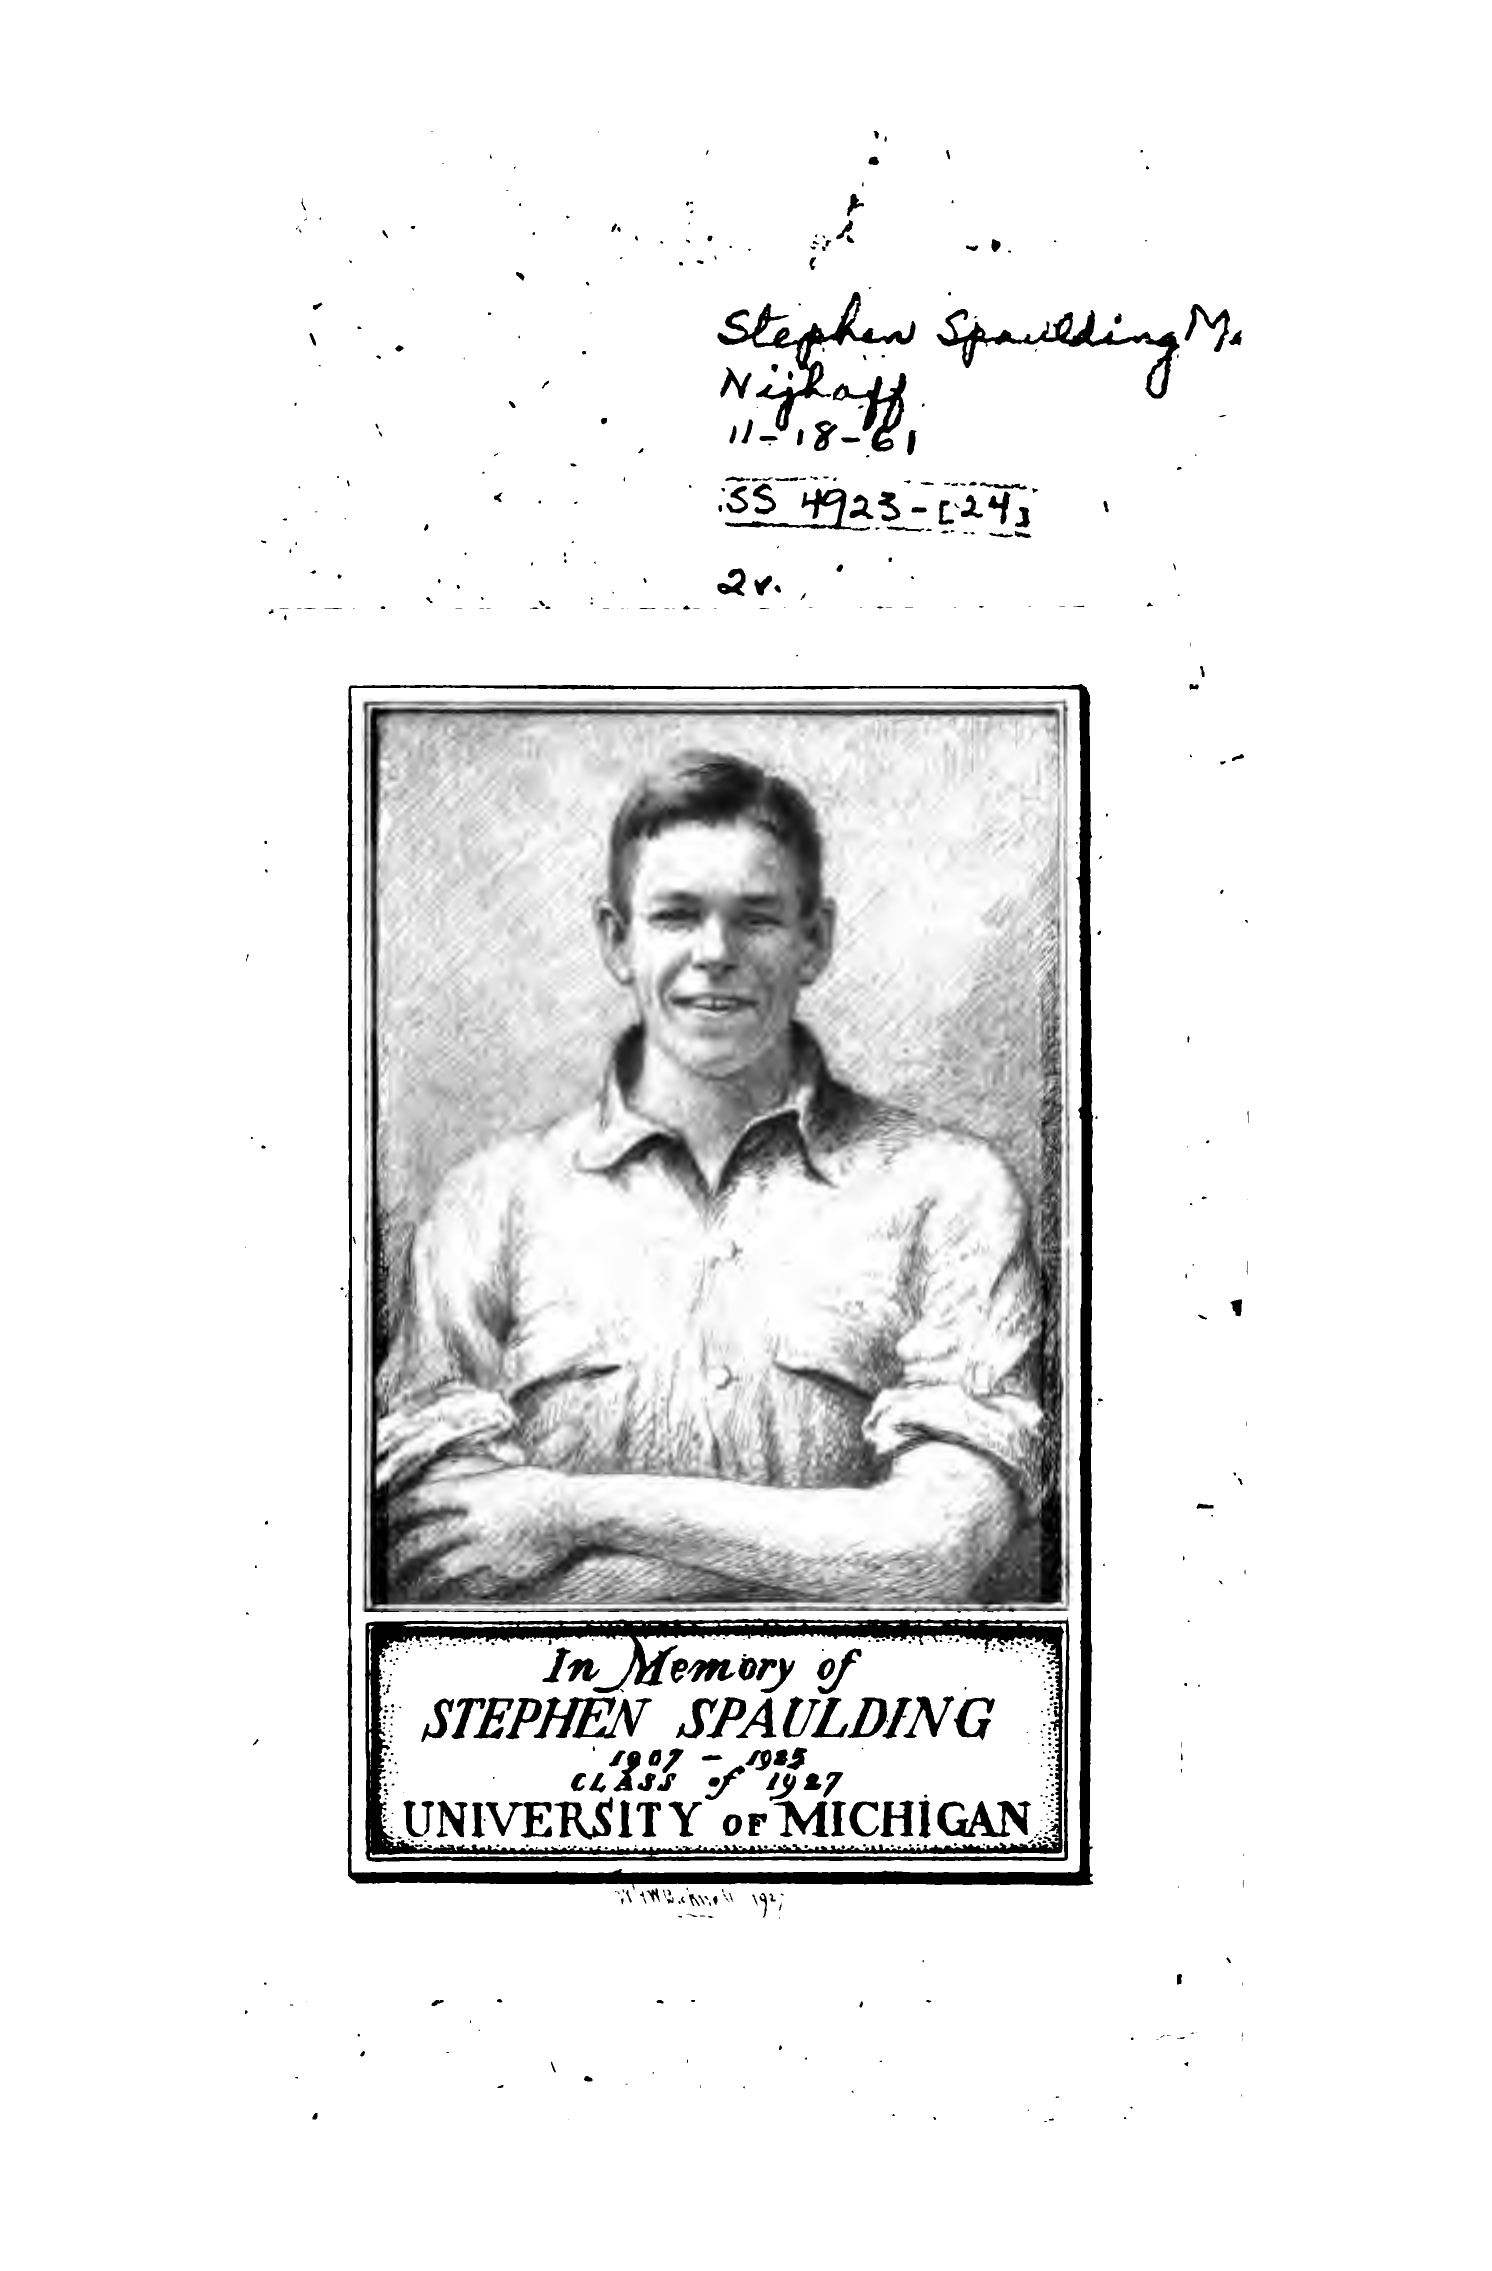 Stephen Spaulding M.
Nijhoff
11-18-61
SS 4923-[24]
2v.
In Memory of
STEPHEN SPAULDING
1907 – 1925
CLASS of 1927
UNIVERSITY OF MICHIGAN
1927